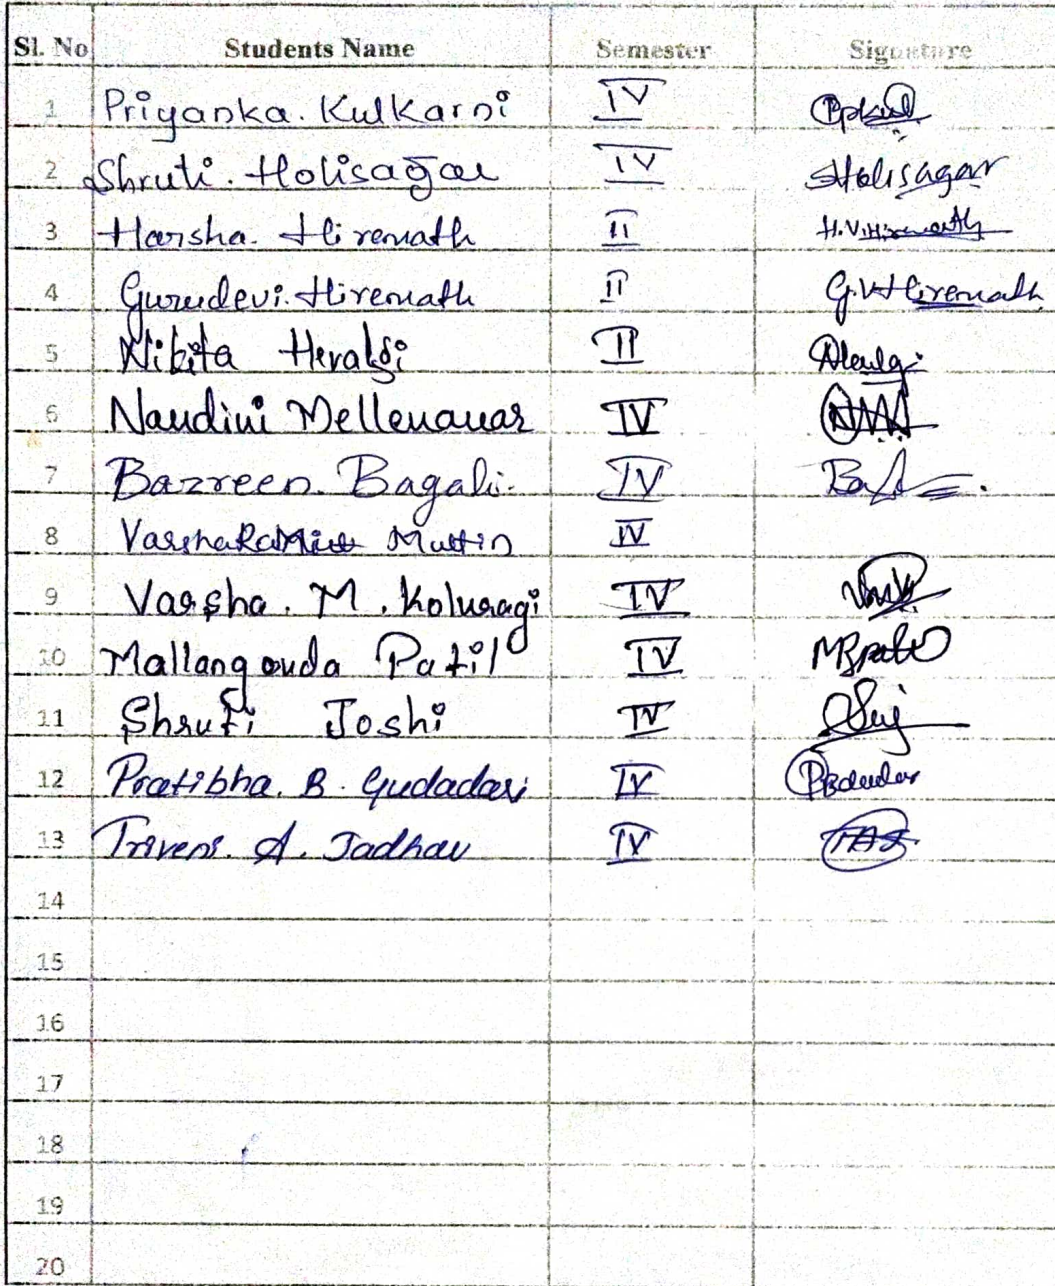 Sl. No Students Name Semester Signature
1 Priyanka. Kulkarni IV
2 Shruti. Holisagar IV SHolisagar
3 Harsha. Hiremath II H.V.Hiremath
4 Gurudevi. Hiremath II G.V Hiremath
5 Nikita Heralgi II
6 Nandini Mellenavar IV
7 Bazreen. Bagali. IV
8 Varsha IV
9 Varsha. M. Koluragi IV
10 Mallangouda Patil IV
11 Shruti Joshi IV
12 Pratibha. B. Gudadari IV
13 Triveni. A. Jadhav IV TAJ
14
15
16
17
18
19
20